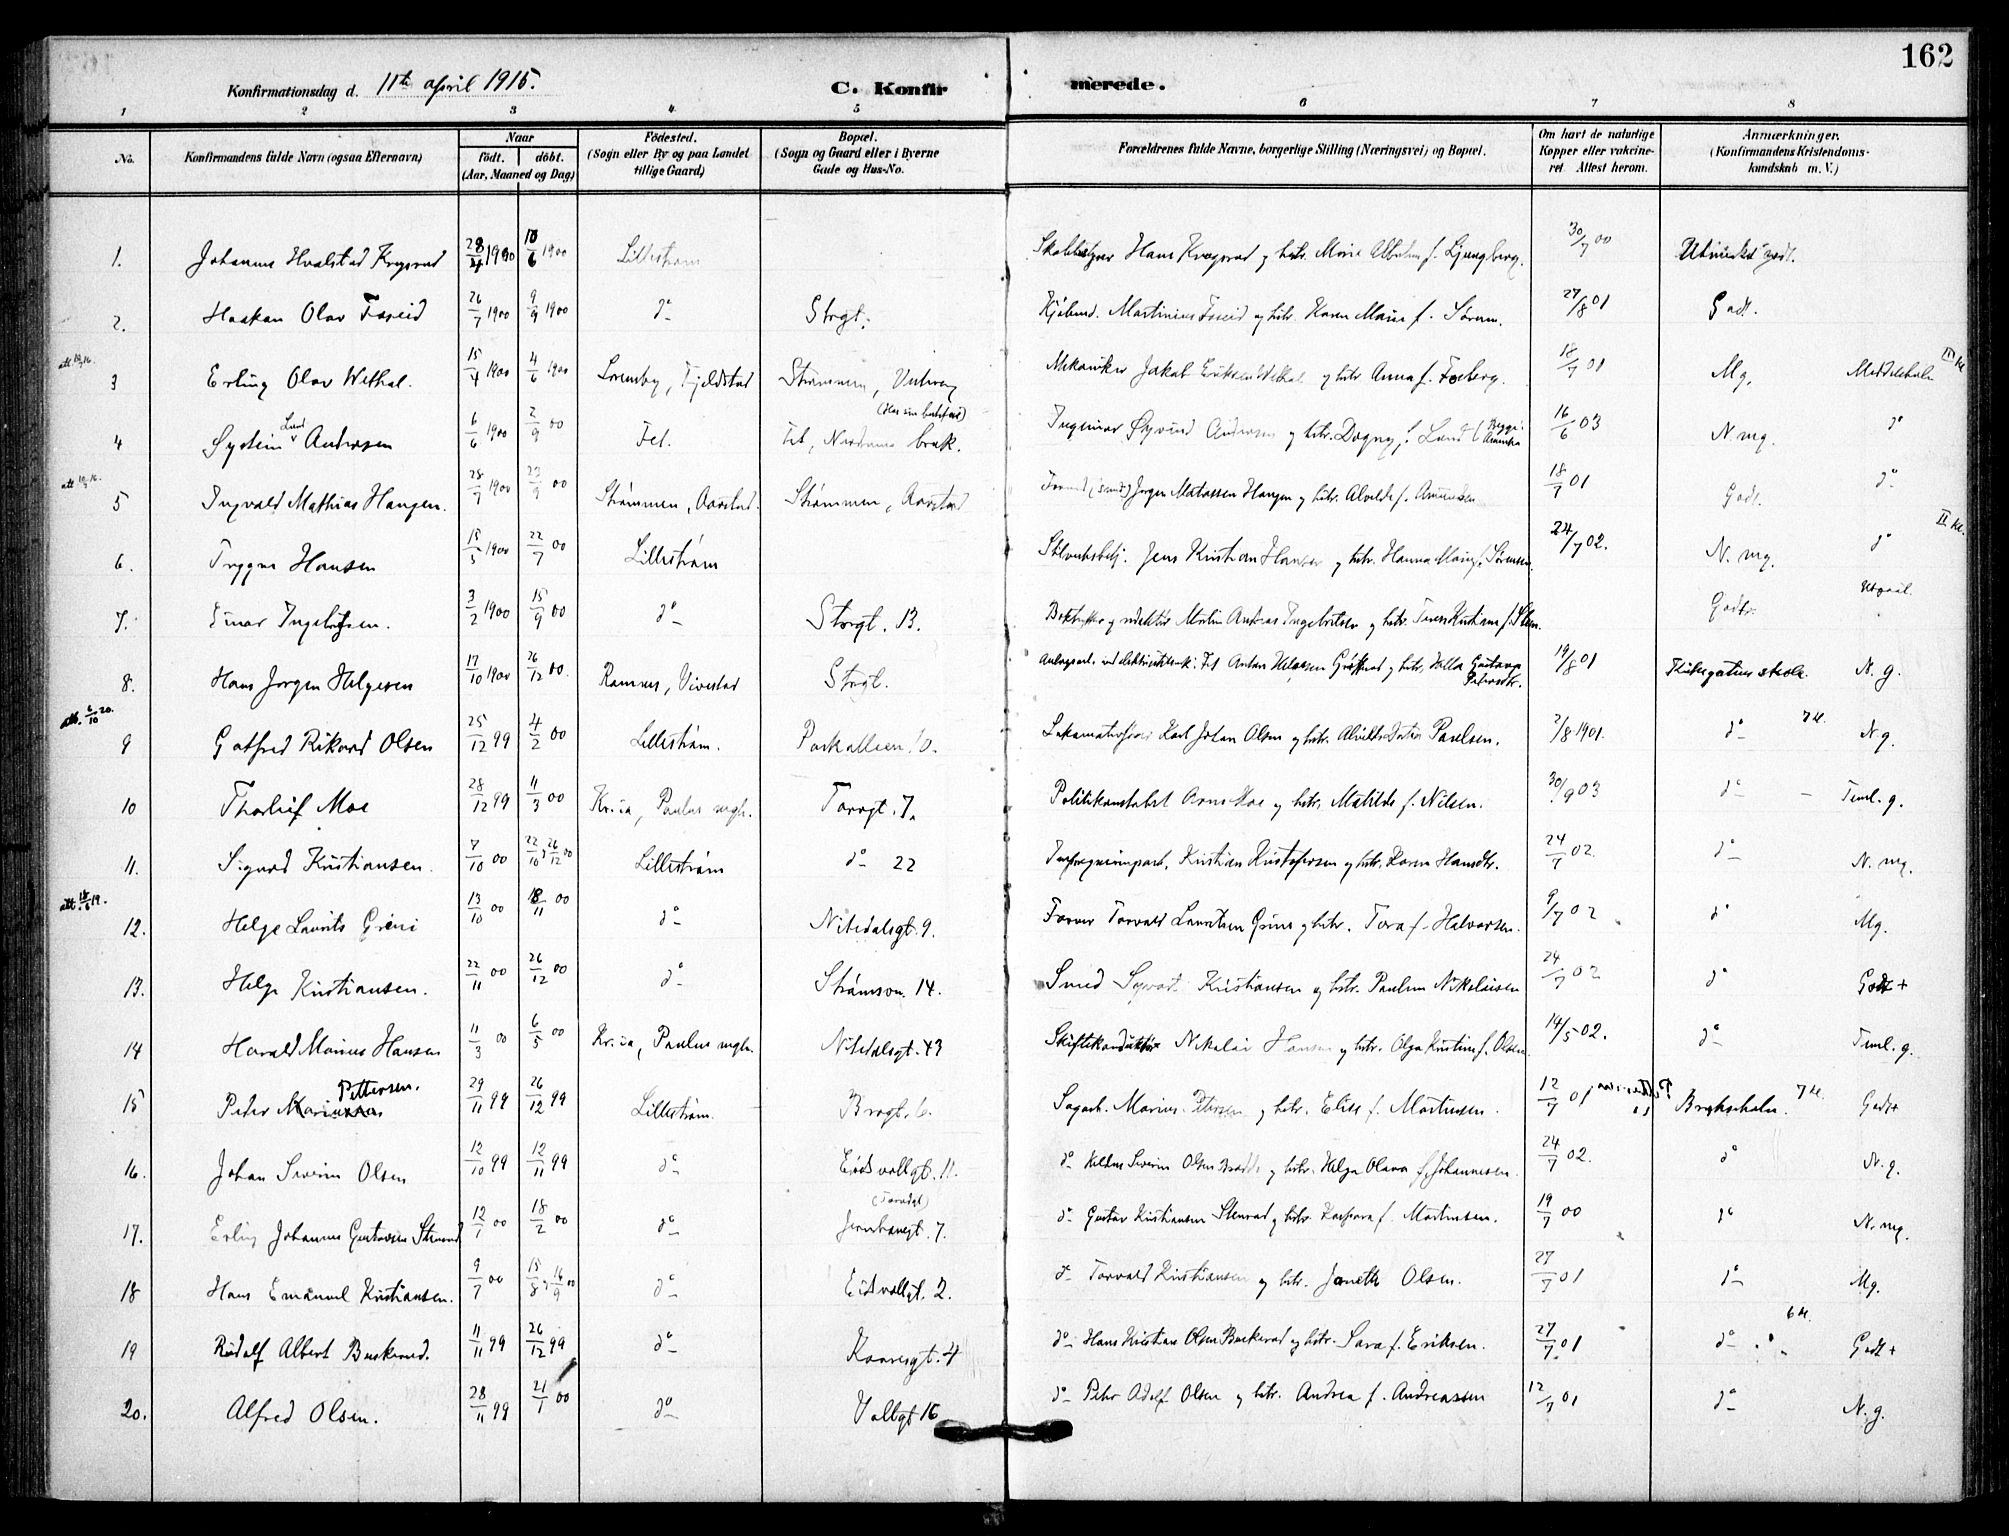 162
Konfirmationsdag d. 11te april 1915.
C. Konfir merede.
1 2 3 4 5 6 7 8
No.
Konfirmandens fulde Navn (ogsaa Efternavn)
Naar
født. døbt.
(Aar, Maaned og Dag)
Fødested.
(Sogn eller By og paa Landet
tillige Gaard)
Bopæl.
(Sogn og Gaard eller i Byerne
Gade og Hus-No.
Forældrenes fulde Navne, borgerlige Stilling (Næringsvei) og Bopæl.
Om havt de naturlige
Kopper eller vakcine-
ret Attest herom.
Anmærkninger.
(Konfirmandens Kristendoms-
kundskab m. V.)
1. Johannes Hvalstad 28/4 1900 10/6 1900 Lillestrøm Hans og hstr. Marie f. Ljungberg. 30/7 00 Udmerket godt.
2. Haakon Olav Foseid 26/7 1900 9/9 1900 do Strgt. Martinius Foseid og hstr. Karen Marie f. Sørum. 27/8 01 Godt.
3 Erling Olav Wethal. 15/4 1900 4/6 1900 Sørumby, Fjeldstad Strømmen, Mekaniker Jakob Eriksen Wethal og hstr. Anna f. Fosberg. 18/7 01 Mg. Middelskole III kl.
4 Øystein Lund Andersen 6/6 1900 2/9 00 Fet. Fet, brak. Ingeniør Øyvind Andersen og hstr. Dagny f. Lund 16/6 03 N. mg. do
5 Ingvald Mathias Haugen. 28/7 1900 23/9 00 Strømmen, Aarstad. Strømmen, Aarstad Jørgen Matassen Haugen og hstr. Alvilde f. Amundsen 18/7 01 Godt. do
6. Trygve Hansen 15/5 1900 22/7 00 Lillestrøm Jens Kristian Hansen og hstr. Hanna Marie f. Sørensen. 24/7 02. N. mg. do II kl.
7. Einar Ingebrigtsen. 3/2 1900 15/9 00 do Strgt. 13. Boktrykker og redaktør Martin Andreas Ingebretsen og hstr. f. Godt.
8. Hans Jørgen Helgesen 17/10 1900 26/12 00. Ramnes, Vivestad Strgt. Anton Helgesen og hstr. Petersdtr. 19/8 01 N. g.
att. 6/10 20.
9 Gotfred Rikard Olsen 25/12 99 4/2 00 Lillestrøm. Parkalleen 10. Lokomotivfører Karl Johan Olsen og hstr. Paulsen. 2/8 1901. do 7 kl. N.g.
10 Thorleif Moe 28/12 99 11/3 00 Kr.ia, Paulus mgh. Torvgt. 7. Politikonstabel Arne Moe og hstr. Matilde f. Nilsen. 30/9 03 do Teml. g.
11. Sigurd Kristiansen. 7/10 00 22/10, 26/12 00 Lillestrøm do 22 Kristian Kristofersen og hstr. Karen Hansdtr. 24/7 02. do N. mg.
12. Helge Laurits Greni 13/10 00 18/11 00 do Nitedalsgt. 9. Farver Torvald Lauritsen Greni og hstr. Tora f. Halvorsen. 9/7 02 do Mg.
13. Helge Kristiansen. 22/11 00 26/12 00 do Strømsv. 14. Smed Kristiansen og hstr. Pauline Nikolaisen 24/7 02 do Godt +
14 Harald Marius Hansen 11/3 00 6/5 00 Kr.ia, Paulus mgh. Nitedalsgt. 43 Skiftekonduktør Nikolai Hansen og hstr. Olga Kristine f. Olsen. 14/5 02. do Teml. g.
15 Peder Marinus Pettersen. 29/11 99 26/12 99 Lillestrøm. Brogt. 6. Sagarb. Marius Petersen og hstr. Elise f. Martinsen. 12/7 01 Brukskolen. 7 kl. Godt+
16. Johan Severin Olsen 12/10 99 12/11 99 do Eidsvollgt. 11. do Severin Olsen og hstr. Helga Olava f. Johannesen. 24/7 02. do N.g.
17. Erling Johannes Gustavsen Stenrud 12/1 00 18/2 00 do Jernbanegt. 7. do Gustav Kristiansen Stenrud og hstr. Kaspara f. Martinsen. 19/7 00 do N. mg.
18 Hans Emanuel Kristiansen. 9/7 00 15/8, 16/9 00 do Eidsvollgt. 2. do Torvald Kristiansen og hstr. Janette Olsen. 27/7 01 do Mg.
19 Rudolf Albert Buskerud. 11/11 99 26/12 99 do Kaaresgt. 4 do Hans Kristian Olsen Buskerud og hstr. Sara f. Eriksen. 27/7 01 do 6 kl. Godt +
20. Alfred Olsen. 28/11 99 21/1 00 do Vollgt 16 do Peter Adolf Olsen og hstr. Andrea f. Andreassen 12/7 01 do N.g.